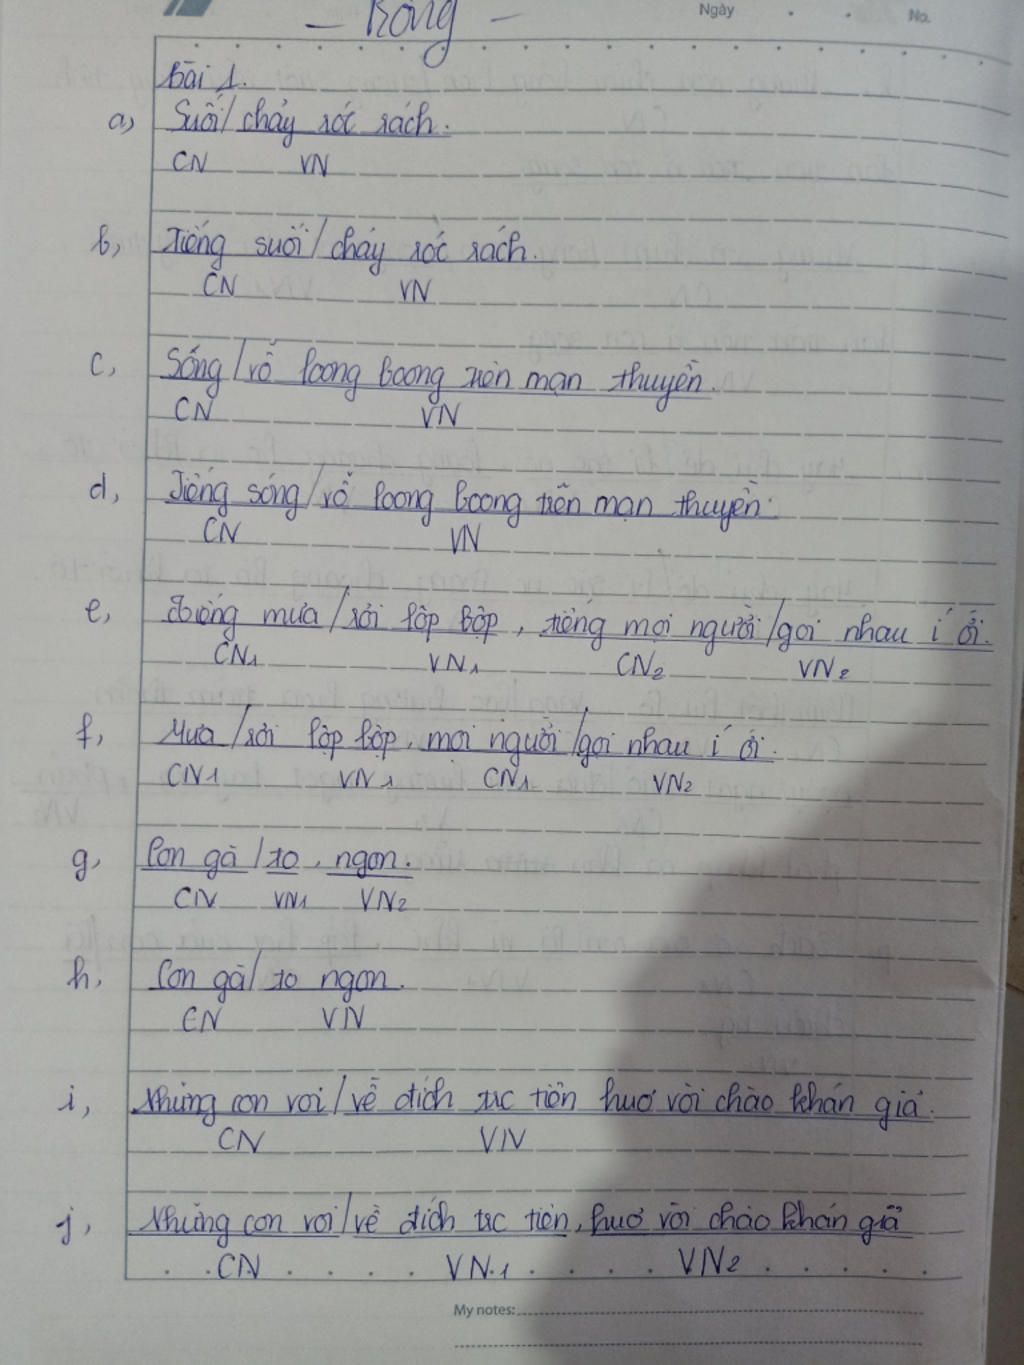 - Rông -
Ngày
No.
bài 1.
a) Suối / chảy róc rách.
CN VN
b, Tiếng suối / chảy róc rách.
CN VN
c, Sóng / vỗ loong boong trên mạn thuyền.
CN VN
d, Tiếng sóng / vỗ loong boong trên mạn thuyền.
CN VN
e, Tiếng mưa / rơi lộp bộp, tiếng mọi người / gọi nhau í ới.
CN1 VN1 CN2 VN2
f, Mưa / rơi lộp bộp, mọi người / gọi nhau í ới.
CN1 VN1 CN1 VN2
g, Con gà / to, ngon.
CN VN1 VN2
h, Con gà / to ngon.
CN VN
i, Những con voi / về đích trước tiên huơ vòi chào khán giả.
CN VN
j, Những con voi / về đích trước tiên, huơ vòi chào khán giả
CN VN1 VN2
My notes: